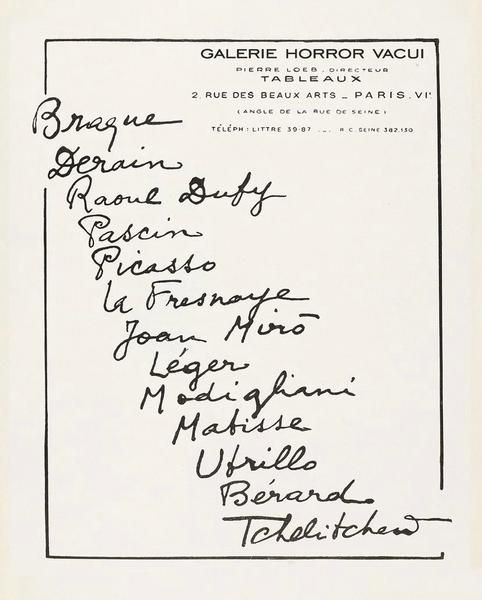 GALERIE HORROR VACUI
PIERRE LOEB . DIRECTEUR
TABLEAUX
2. RUE DES BEAUX ARTS _ PARIS. VIᵉ
( ANGLE DE LA RUE DE SEINE )
TÉLÉPH : LITTRE 39-87 _._ R.C. SEINE 382.130
Braque
Derain
Raoul Dufy
Pascin
Picasso
la Fresnaye
Joan Miró
Léger
Modigliani
Matisse
Utrillo
Bérard
Tchelitchew